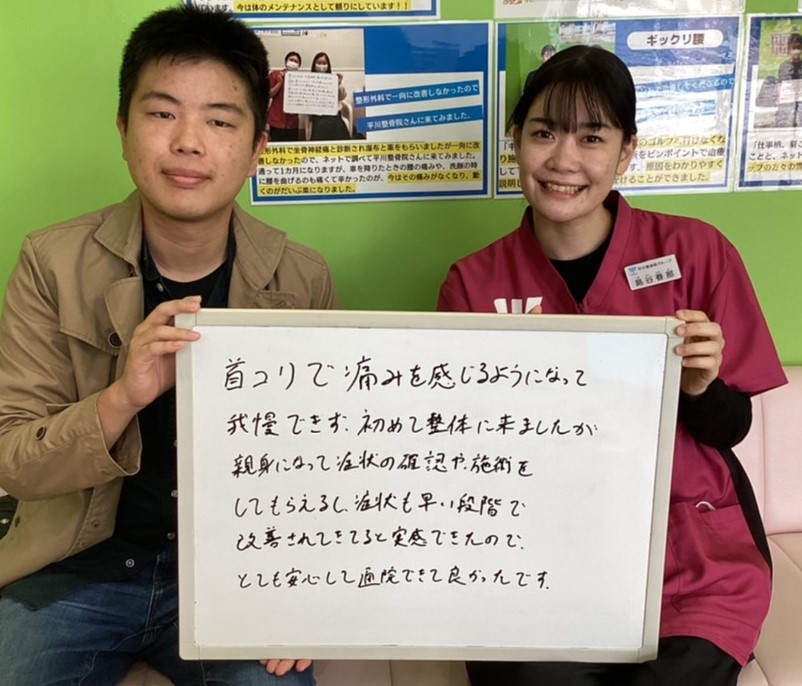 ています。今は体のメンテナンスとして頼りにしています！！
整形外科で一向に改善しなかったので
平川整骨院さんに来てみました。
形外科で坐骨神経痛と診断され湿布と薬をもらいましたが一向に
善しなかったので、ネットで調べて平川整骨院さんに来てみました。
通って1カ月になりますが、車を降りたときの腰の痛みや、洗顔の時
に腰を曲げるのも痛くて辛かったのが、今はその痛みがなくなり、動
くのがだいぶ楽になりました。
ギックリ腰
のゴルフに行けなくな
をピンポイントで治療
原因をわかりやすく
説明し
けることができました。
「仕事柄、肩こ
ことと、ネット
首コリで痛みを感じるようになって
我慢できず、初めて整体に来ましたが
親身になって症状の確認や、施術を
してもらえるし、症状も早い段階で
改善されてきてると実感できたので、
とても安心して通院できて良かったです。